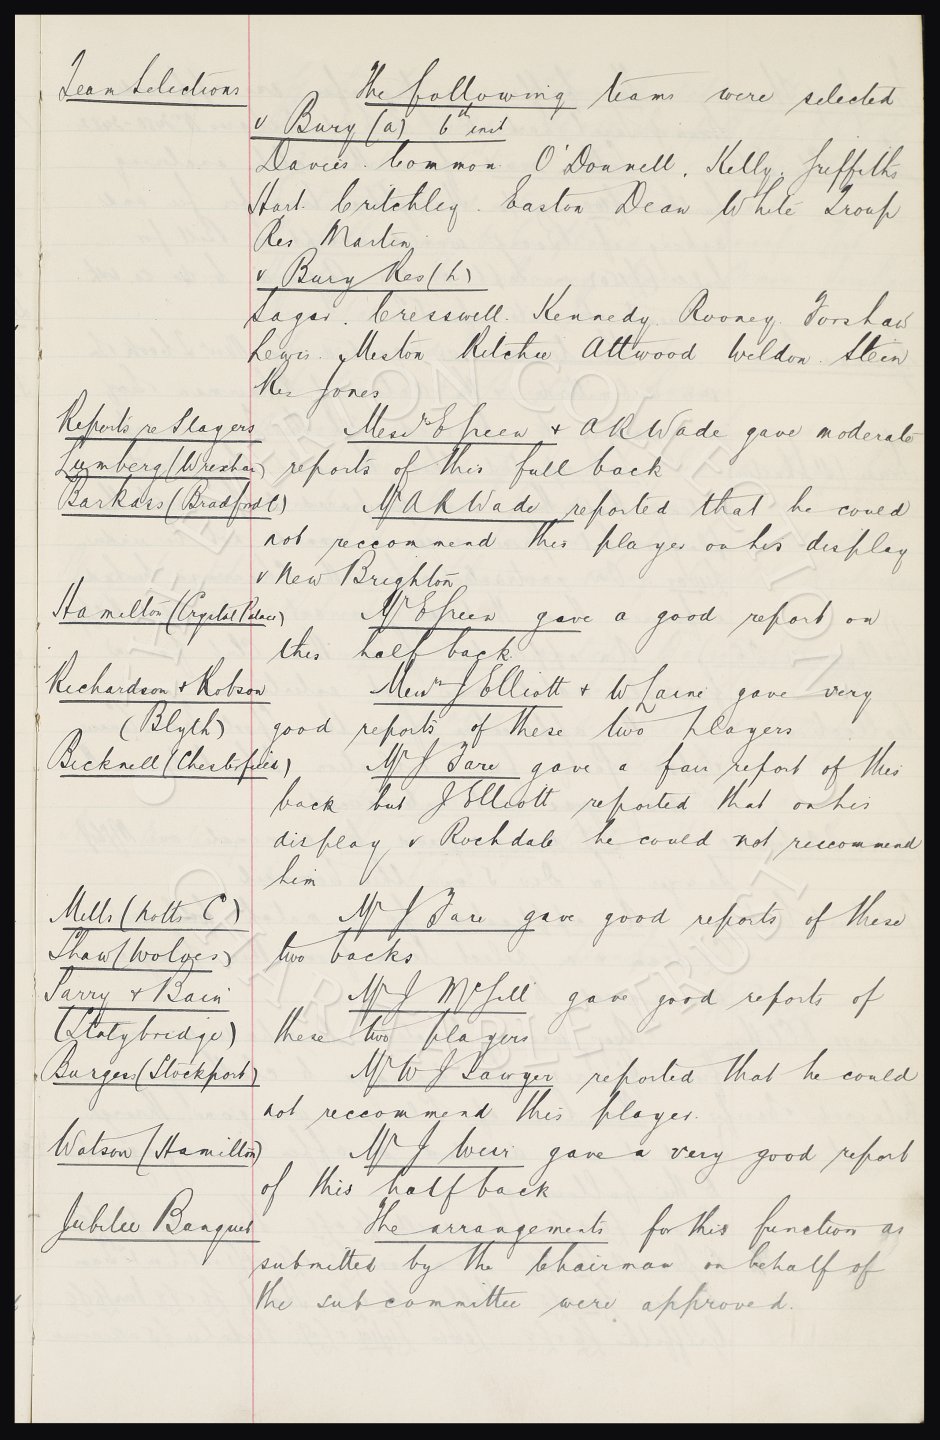 Team Selections The following teams were selected
v Bury (a) 6th inst
Davies. Common. O'Donnell. Kelly. Griffiths
Hart. Critchley. Easton Dean White Troup
Res Martin.
v Bury Res (h)
Sagar. Cresswell. Kennedy. Rooney. Forshaw
Lewis. Meston Ritchie Attwood Weldon. Stein
Res Jones
Reports re Players Messrs E Green & A R Wade gave moderate
Lumberg (Wrexham) reports of this full back
Barkass (Bradford C) Mr A R Wade reported that he could
not reccommend this player on his display
v New Brighton
Hamilton (Crystal Palace) Mr E Green gave a good report on
this half back.
Richardson & Robson Messrs J Elliott & W Laine gave very
(Blyth) good reports of these two players
Bicknell (Chesterfield) Mr J Fare gave a fair report of this
back but J Elliott reported that on his
display v Rochdale he could not reccommend
him
Mills (Notts C) Mr J Fare gave good reports of these
Shaw (Wolves) two backs
Parry & Bain Mr J McGill gave good reports of
(Stalybridge) these two players
Burgess (Stockport) Mr W J Sawyer reported that he could
not reccommend this player.
Watson (Hamilton) Mr J Weir gave a very good report
of this half back
Jubilee Banquet The arrangements for this function as
submitted by the Chairman on behalf of
the subcommittee were approved.